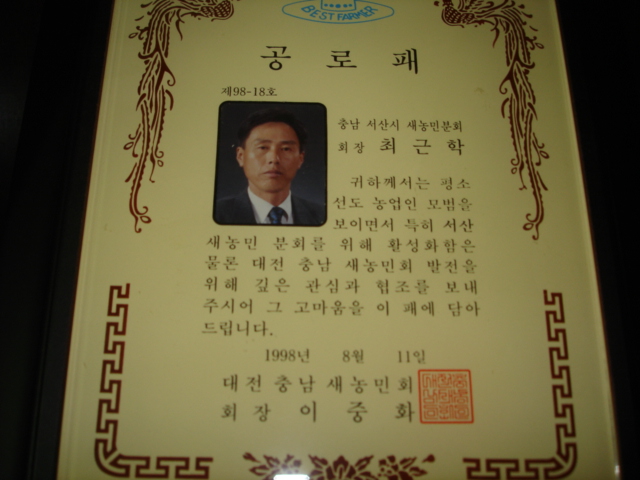 BEST FARMER
공로패
제98-18호
충남 서산시 새농민분회
회장 최근학
귀하께서는 평소
선도 농업인 모범을
보이면서 특히 서산
새농민 분회를 위해 활성화함은
물론 대전 충남 새농민회 발전을
위해 깊은 관심과 협조를 보내
주시어 그 고마움을 이 패에 담아
드립니다.
1998년 8월 11일
대전충남새농민회
회장 이중화